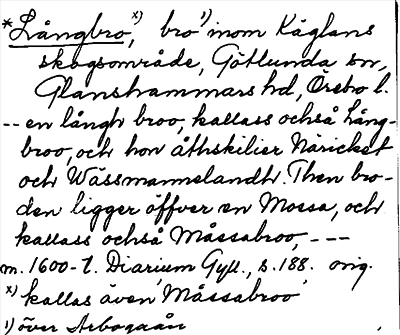 *Långbro,x) bro1) inom Käglans
skogsområde, Götlunda sn,
Glanshammars hd, Örebro l.
-- en långh broo, kallass ochså Lång-
broo, och hon åthskilier Näricket
och Wässmannelandh. Then bro-
den ligger öffver en Mossa, och
kallass ochså Måssabroo, ---
m. 1600-t. Diarium Gyll., s. 188. orig.
x) kallas även 'Måssabroo'
1) över Arbogaån